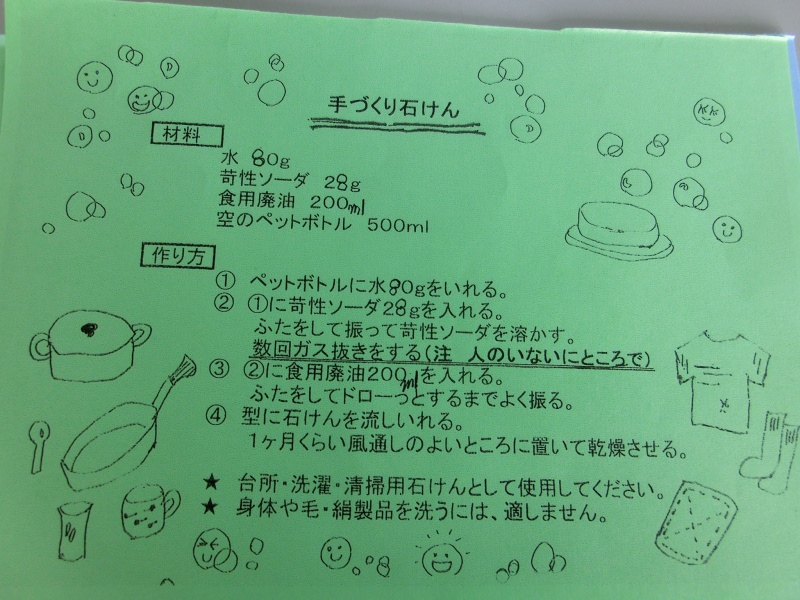 手づくり石けん
材料
水 80g
苛性ソーダ 28g
食用廃油 200ml
空のペットボトル 500ml
作り方
① ペットボトルに水80gをいれる。
② ①に苛性ソーダ28gを入れる。
ふたをして振って苛性ソーダを溶かす。
数回ガス抜きをする(注 人のいないにところで)
③ ②に食用廃油200mlを入れる。
ふたをしてドローっとするまでよく振る。
④ 型に石けんを流しいれる。
1ヶ月くらい風通しのよいところに置いて乾燥させる。
★ 台所・洗濯・清掃用石けんとして使用してください。
★ 身体や毛・絹製品を洗うには、適しません。